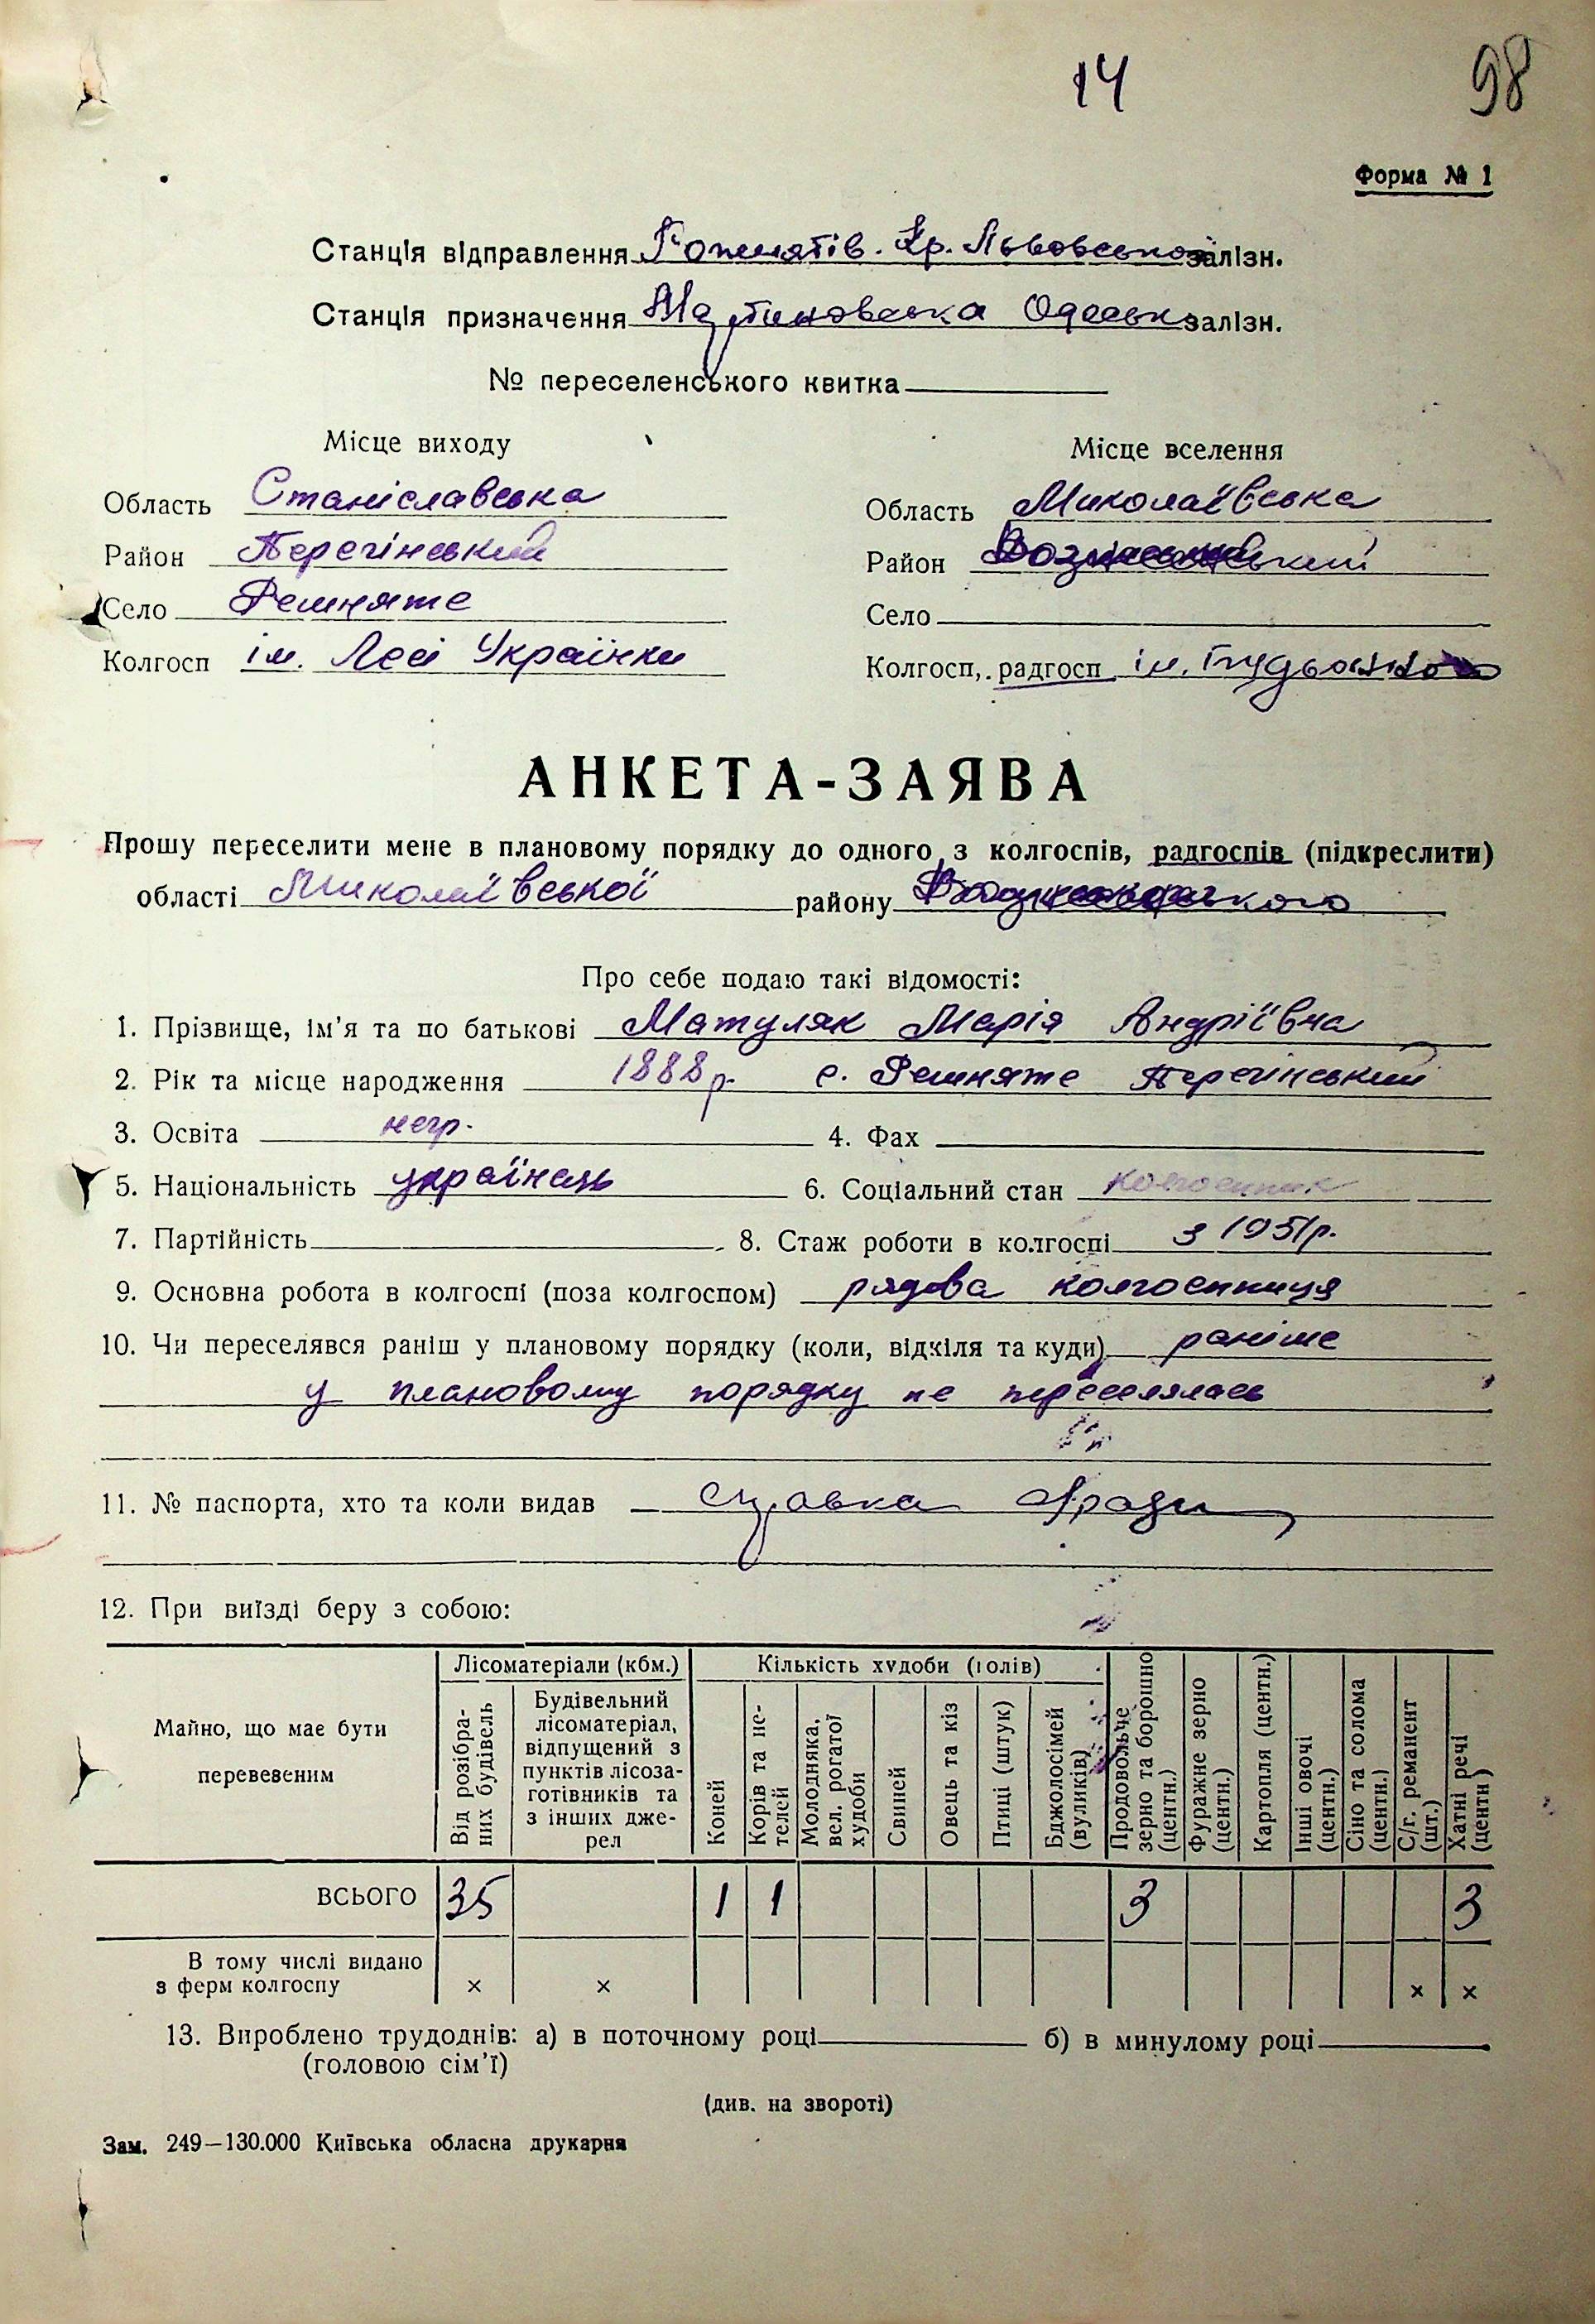 14
98
Форма № 1
Станція відправлення Рожнятів. Кр. Львовської залізн.
Станція призначення Мартиновська Одеськ залізн.
№ переселенського квитка
Місце виходу
Місце вселення
Область Станіславська
Область Миколаївська
Район Перегінський
Район Вознесенський
Село Решняте
Село
Колгосп ім. Лесі Українки
Колгосп, радгосп ім. Будьонного
АНКЕТА-ЗАЯВА
Прошу переселити мене в плановому порядку до одного з колгоспів, радгоспів (підкреслити)
області Миколаївської району Вознесенського
Про себе подаю такі відомості:
1. Прізвище, ім’я та по батькові Матуляк Марія Андріївна
2. Рік та місце народження 1888 р. с. Решняте Перегінський
3. Освіта негр. 4. Фах
5. Національність українець 6. Соціальний стан колгоспник
7. Партійність 8. Стаж роботи в колгоспі з 1951 р.
9. Основна робота в колгоспі (поза колгоспом) рядова колгоспниця
10. Чи переселявся раніш у плановому порядку (коли, відкіля та куди) раніше
у плановому порядку не переселялась
11. № паспорта, хто та коли видав справка с/ради
12. При виїзді беру з собою:
Майно, що має бути перевезеним
Лісоматеріали (кбм.)
Від розібраних будівель
Будівельний лісоматеріал, відпущений з пунктів лісозаготівників та з інших джерел
Кількість худоби (голів)
Коней
Корів та нетелей
Молодняка, вел. рогатої худоби
Свиней
Овець та кіз
Птиці (штук)
Бджолосімей (вуликів)
Продовольче зерно та борошно (центн.)
Фуражне зерно (центн.)
Картопля (центн.)
Інші овочі (центн.)
Сіно та солома (центн.)
С/г. реманент (шт.)
Хатні речі (центн)
ВСЬОГО 35 1 1 3 3
В тому числі видано
з ферм колгоспу × × × ×
13. Вироблено трудоднів: а) в поточному році б) в минулому році
(головою сім’ї)
(див. на звороті)
Зам. 249—130.000 Київська обласна друкарня